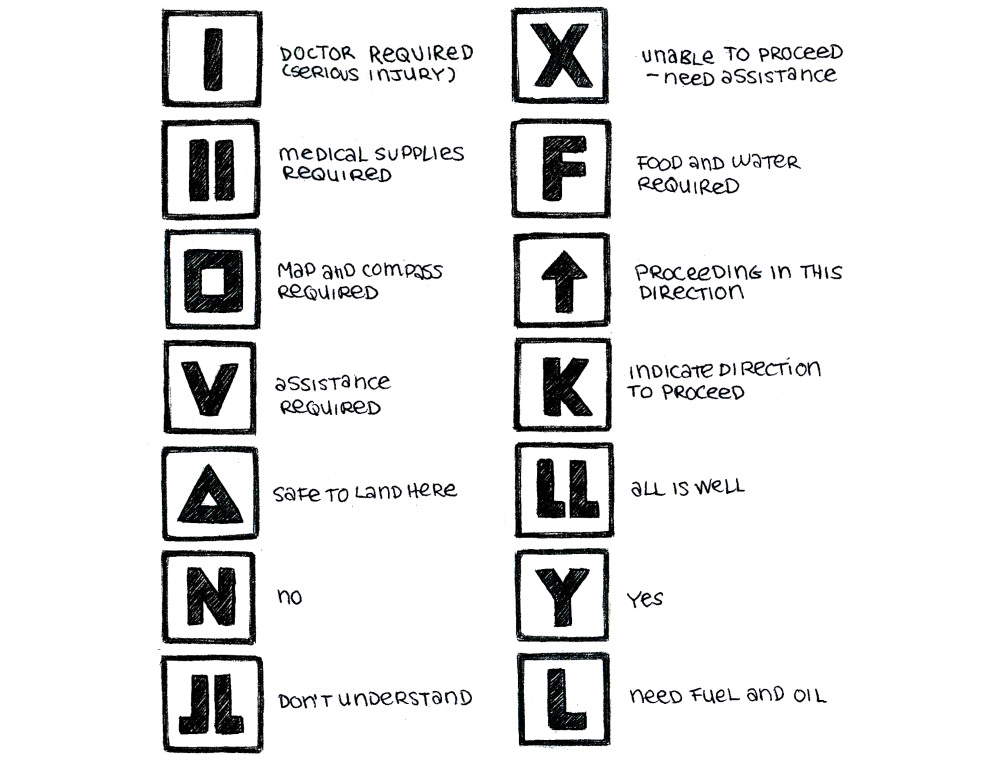 I
DOCTOR REQUIRED
(SERIOUS INJURY)
II
MEDICAL SUPPLIES
REQUIRED
MAP AND COMPASS
REQUIRED
V
ASSISTANCE
REQUIRED
SAFE TO LAND HERE
N
NO
JL
DON'T UNDERSTAND
X
UNABLE TO PROCEED
- NEED ASSISTANCE
F
FOOD AND WATER
REQUIRED
PROCEEDING IN THIS
DIRECTION
K
INDICATE DIRECTION
TO PROCEED
LL
ALL IS WELL
Y
YES
L
NEED FUEL AND OIL